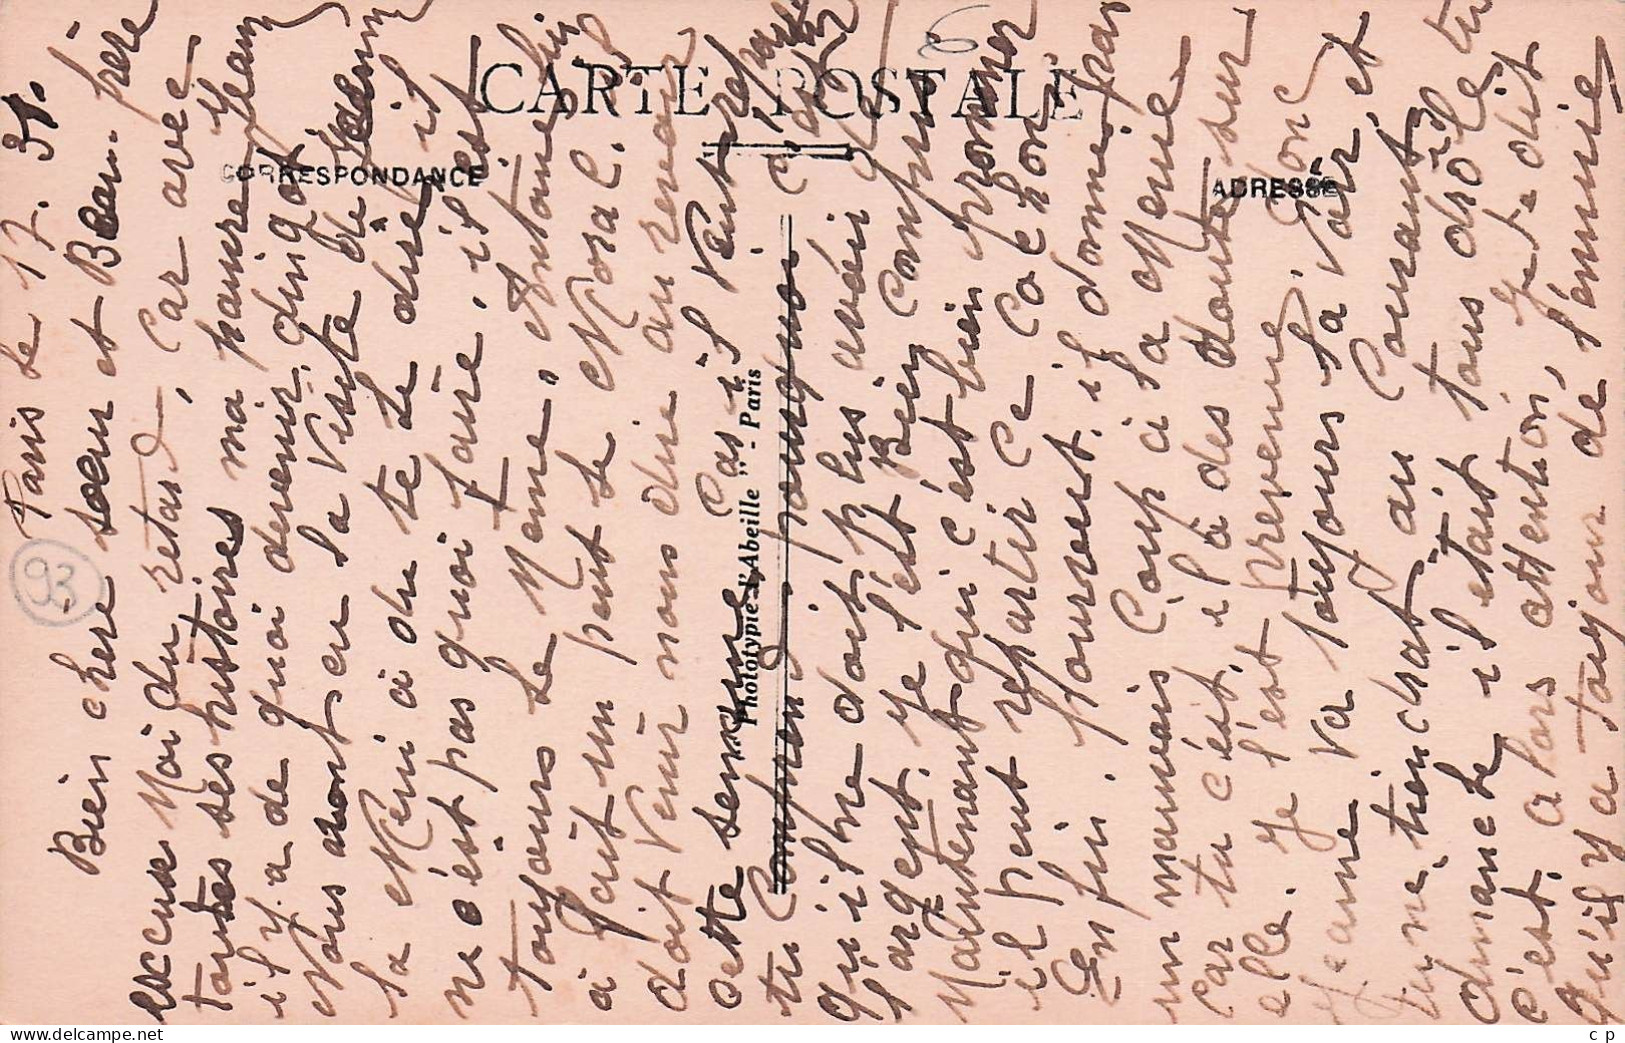 CARTE POSTALE
CORRESPONDANCE
ADRESSE
Phototypie "l'Abeille" - Paris
93
6
Paris le 17. 31.
Bien chere soeur et Beau-frère
excuse Moi du retard, Car avec
toutes ses histoires ma pauvre Jean
il y a de quoi devenir dingot
Nous avons eu la Visite de
la Mémé a du te le dire, il
ne c'est pas quoi faire, il est
toujours le Meme, Antoine lui
a fait un peut le Moral. il
doit Venir nous dire au revoir
cette semaine Car il Veut
tu Comprend, pourquoi
qu'il ne doit plus avoir
l'argent. Je l'est Bien Compris
Maintenant qui c'est bien promner
il peut repartir ce Cochon
Enfin. Pourvut. il donne pas
un mauvais Coup a la Meme
Car tu c'est, il a des doute sur
elle. Je l'est prevenue, donc
Jeanne Va toujours la Voir, et
tu me tiendrat au Courant
dimanche il etait tous drole tu
c'est. alors attention, Je te dit
qu'il y a toujour de l'ennuie
c p